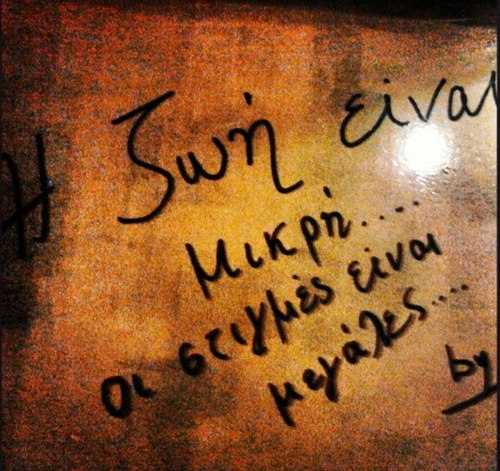 Η ζωή είναι
μικρή....
οι στιγμές είναι
μεγάλες....
by